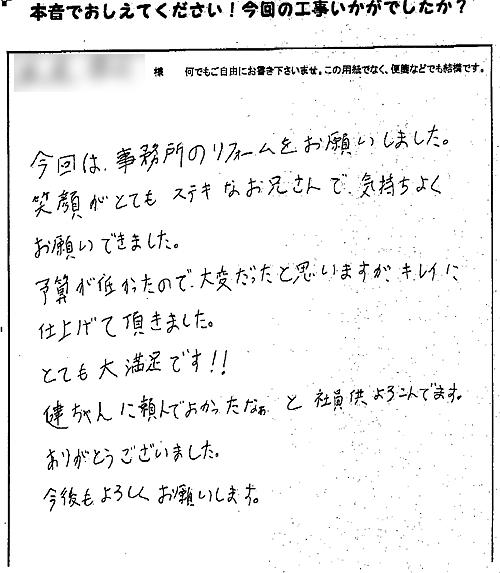 本音でおしえてください！今回の工事いかがでしたか？
様　何でもご自由にお書き下さいませ。この用紙でなく、便箋などでも結構です。
今回は、事務所のリフォームをお願いしました。
笑顔がとても ステキなお兄さんで、気持ちよく
お願いできました。
予算が低かったので、大変だったと思いますが、キレイに
仕上げて頂きました。
とても大満足です!!
健ちゃんに頼んでよかったなぁ と 社員供よろこんでます。
ありがとうございました。
今後もよろしくお願いします。